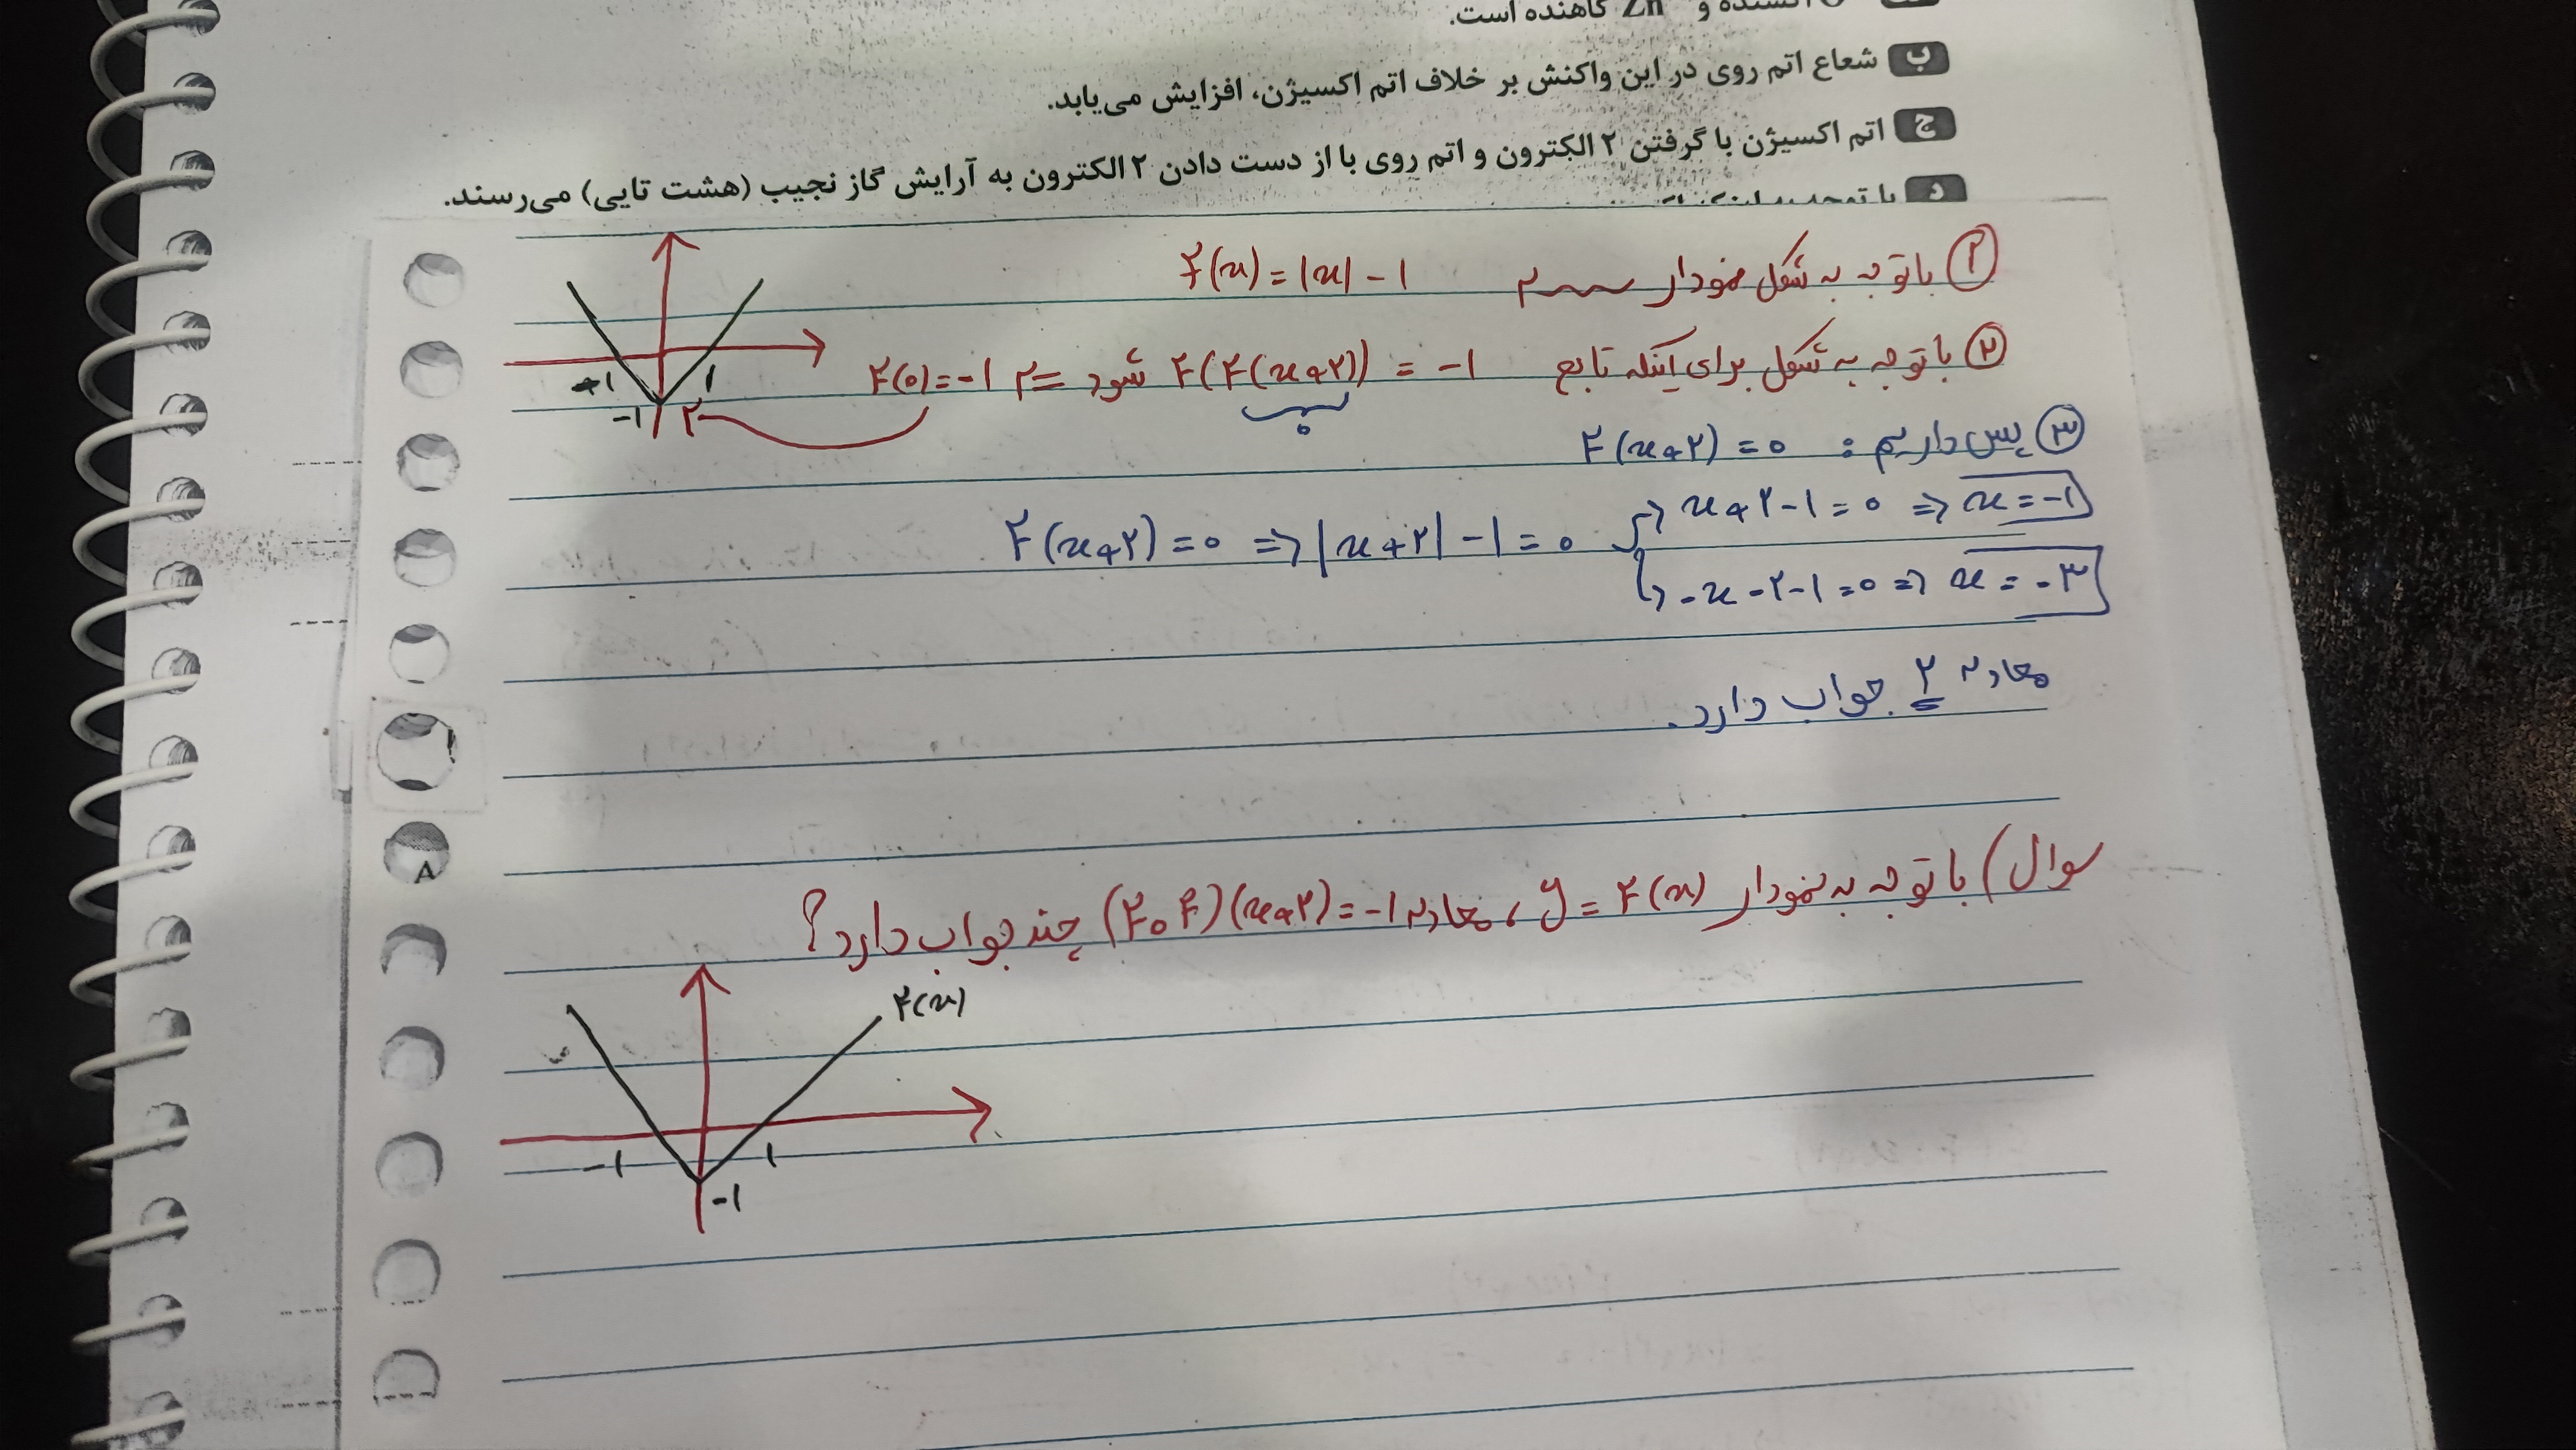 اکسنده و Zn کاهنده است.
ب شعاع اتم روی در این واکنش بر خلاف اتم اکسیژن، افزایش می‌یابد.
ج اتم اکسیژن با گرفتن ۲ الکترون و اتم روی با از دست دادن ۲ الکترون به آرایش گاز نجیب (هشت تایی) می‌رسند.
د با توجه به اینکه
① با توجه به شکل نمودار f(x) = |x| - 1
-1 1 -1
② با توجه به شکل برای اینکه تابع f(f(x+۲)) = -1 شود => f(0) = -1
0
③ پس داریم: f(x+۲) = 0
f(x+۲) = 0 => |x+۲| - 1 = 0 → x+۲-1 = 0 => x = -1
→ -x-۲-1 = 0 => x = -۳
معادله ۲ جواب دارد.
A
سوال) با توجه به نمودار y = f(x)، معادله (fof)(x+۲) = -1 چند جواب دارد؟
f(x)
-1 1
-1